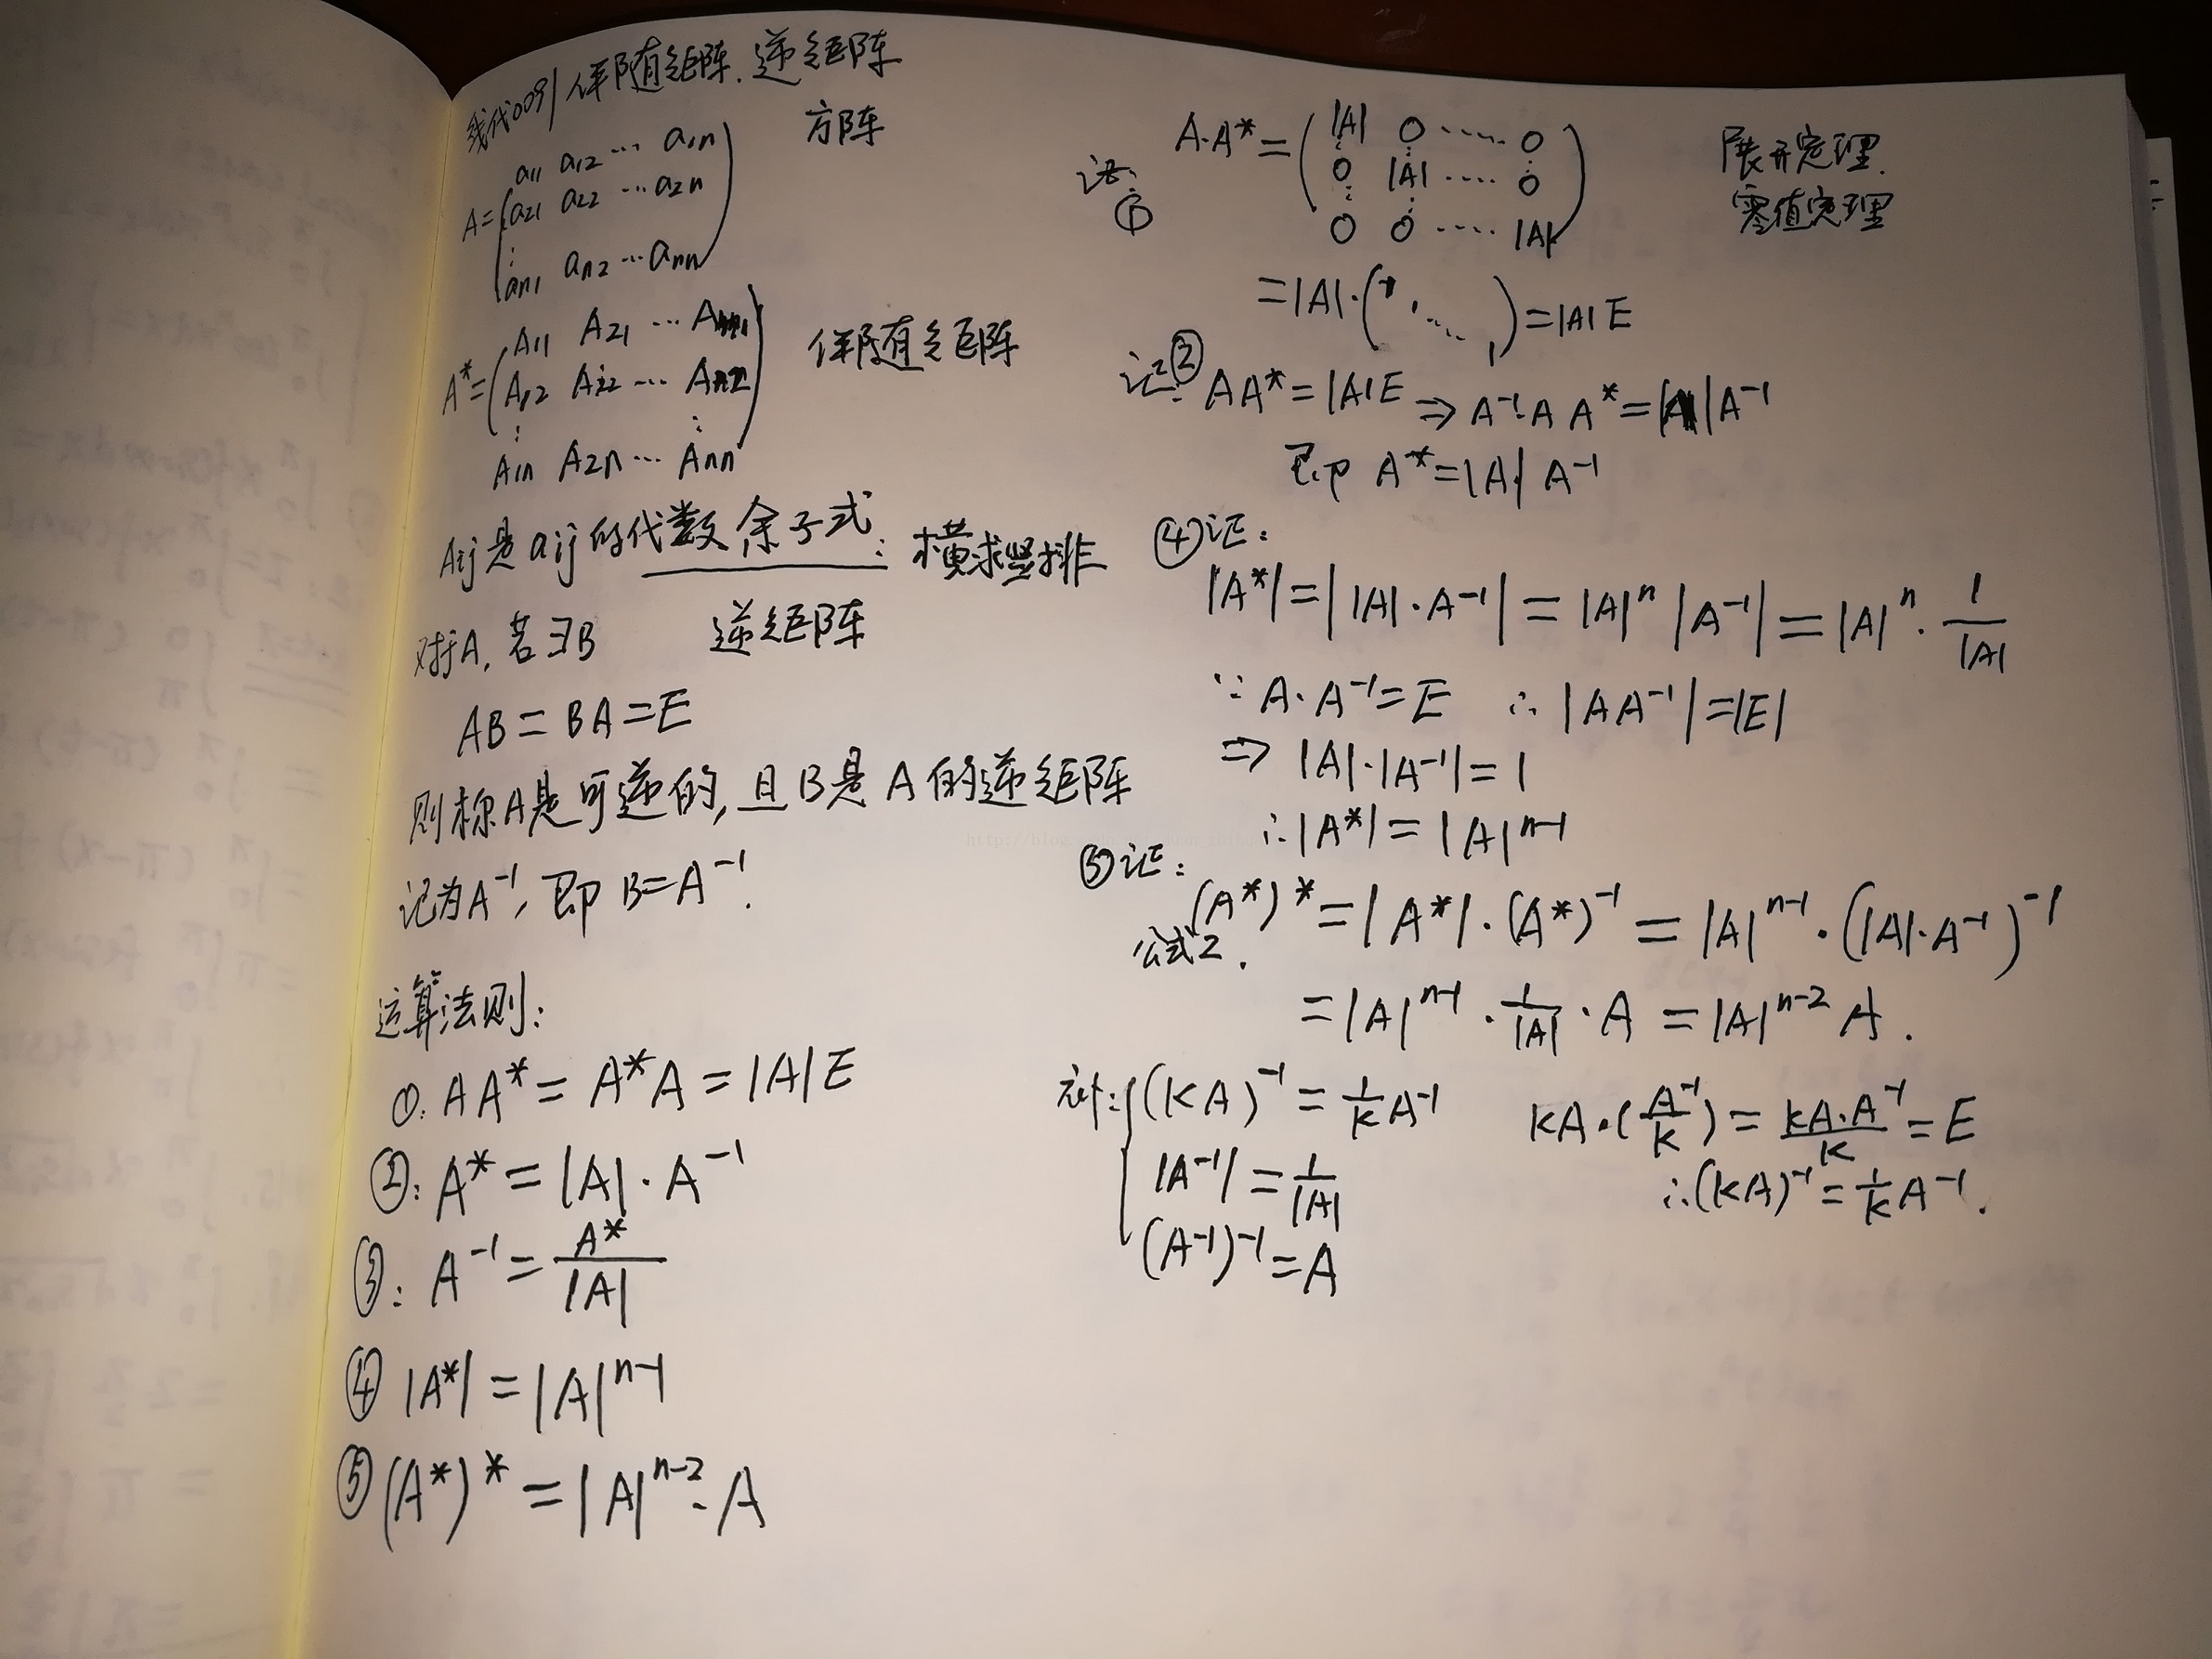 线代009|伴随矩阵.逆矩阵
A=(a11 a12 ⋯ a1n
a21 a22 ⋯ a2n
⋮
an1 an2 ⋯ ann)
方阵
A*=(A11 A21 ⋯ An1
A12 A22 ⋯ An2
⋮ ⋮
A1n A2n ⋯ Ann)
伴随矩阵
Aij是aij的代数余子式: 横求竖排
对于A,若∃B 逆矩阵
AB=BA=E
则称A是可逆的,且B是A的逆矩阵
记为A⁻¹,即B=A⁻¹.
运算法则:
①:AA*=A*A=|A|E
②:A*=|A|·A⁻¹
③:A⁻¹=A*/|A|
④ |A*|=|A|ⁿ⁻¹
⑤ (A*)*=|A|ⁿ⁻²·A
证:① A·A*=(|A| 0 ⋯ 0
0 |A| ⋯ 0
⋮ ⋮ ⋮
0 0 ⋯ |A|)
展开定理.
零值定理
=|A|·(1 1 ⋱ 1)=|A|E
证②: AA*=|A|E ⇒ A⁻¹·A A*=|A|A⁻¹
即 A*=|A|A⁻¹
④证:
|A*|=||A|·A⁻¹|=|A|ⁿ|A⁻¹|=|A|ⁿ·1/|A|
∵A·A⁻¹=E ∴|AA⁻¹|=|E|
⇒|A|·|A⁻¹|=1
∴|A*|=|A|ⁿ⁻¹
⑤证:
(A*)*=|A*|·(A*)⁻¹=|A|ⁿ⁻¹·(|A|·A⁻¹)⁻¹
公式2.
=|A|ⁿ⁻¹·1/|A|·A=|A|ⁿ⁻²A.
补:{(kA)⁻¹=1/k A⁻¹ kA·(A⁻¹/k)=kA·A⁻¹/k=E
|A⁻¹|=1/|A| ∴(kA)⁻¹=1/k A⁻¹.
(A⁻¹)⁻¹=A